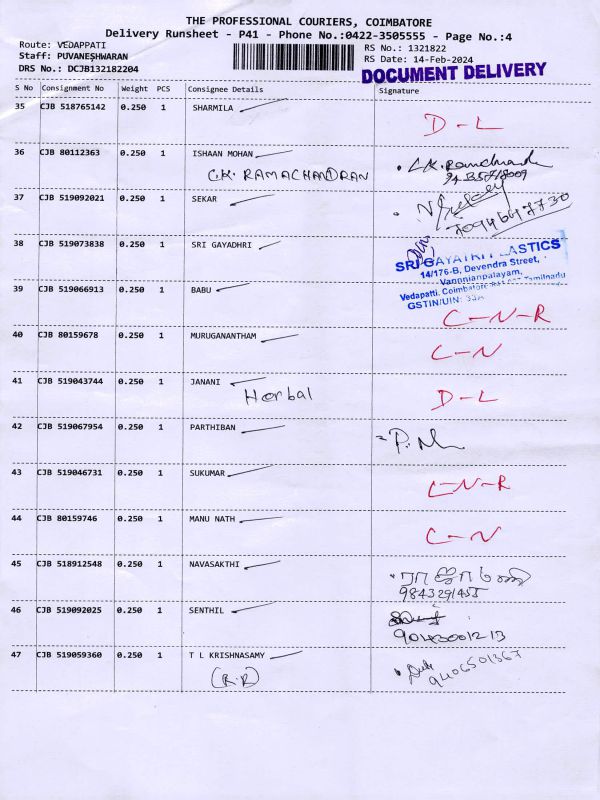 THE PROFESSIONAL COURIERS, COIMBATORE
Delivery Runsheet - P41 - Phone No.:0422-3505555 - Page No.:4
Route: VEDAPPATI
RS No.: 1321822
Staff: PUVANESHWARAN
RS Date: 14-Feb-2024
DRS No.: DCJB132182204
DOCUMENT DELIVERY
S No Consignment No Weight PCS Consignee Details Signature
35 CJB 518765142 0.250 1 SHARMILA D-L
36 CJB 80112363 0.250 1 ISHAAN MOHAN
C.K. RAMACHANDRAN
37 CJB 519092021 0.250 1 SEKAR
38 CJB 519073838 0.250 1 SRI GAYADHRI
SRI GAYATRI PLASTICS
14/176-B, Devendra Street,
Vannnianpalayam,
Vedapatti, Coimbatore Tamilnadu
GSTIN/UIN: 33A
39 CJB 519066913 0.250 1 BABU C-N-R
40 CJB 80159678 0.250 1 MURUGANANTHAM C-N
41 CJB 519043744 0.250 1 JANANI D-L
Herbal
42 CJB 519067954 0.250 1 PARTHIBAN
43 CJB 519046731 0.250 1 SUKUMAR C-N-R
44 CJB 80159746 0.250 1 MANU NATH C-N
45 CJB 518912548 0.250 1 NAVASAKTHI
9843291455
46 CJB 519092025 0.250 1 SENTHIL
9043001213
47 CJB 519059360 0.250 1 T L KRISHNASAMY
9406501367
(R.R)